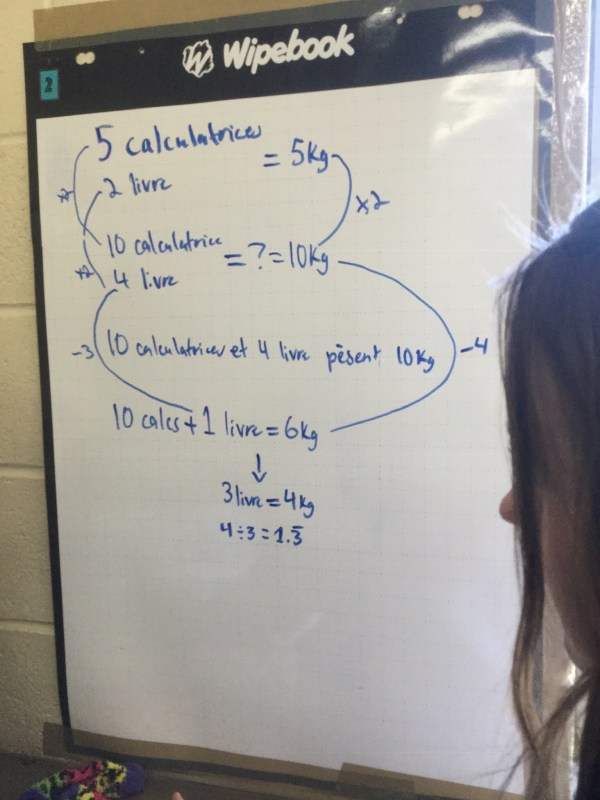 Wipebook
2
5 calculatrices
= 5kg
2 livre
x2
x2
10 calculatrice
= ? = 10kg
x2
4 livre
-3
10 calculatrices et 4 livre pèsent 10kg
-4
10 calcs + 1 livre = 6kg
↓
3 livre = 4kg
4 ÷ 3 = 1.3̄